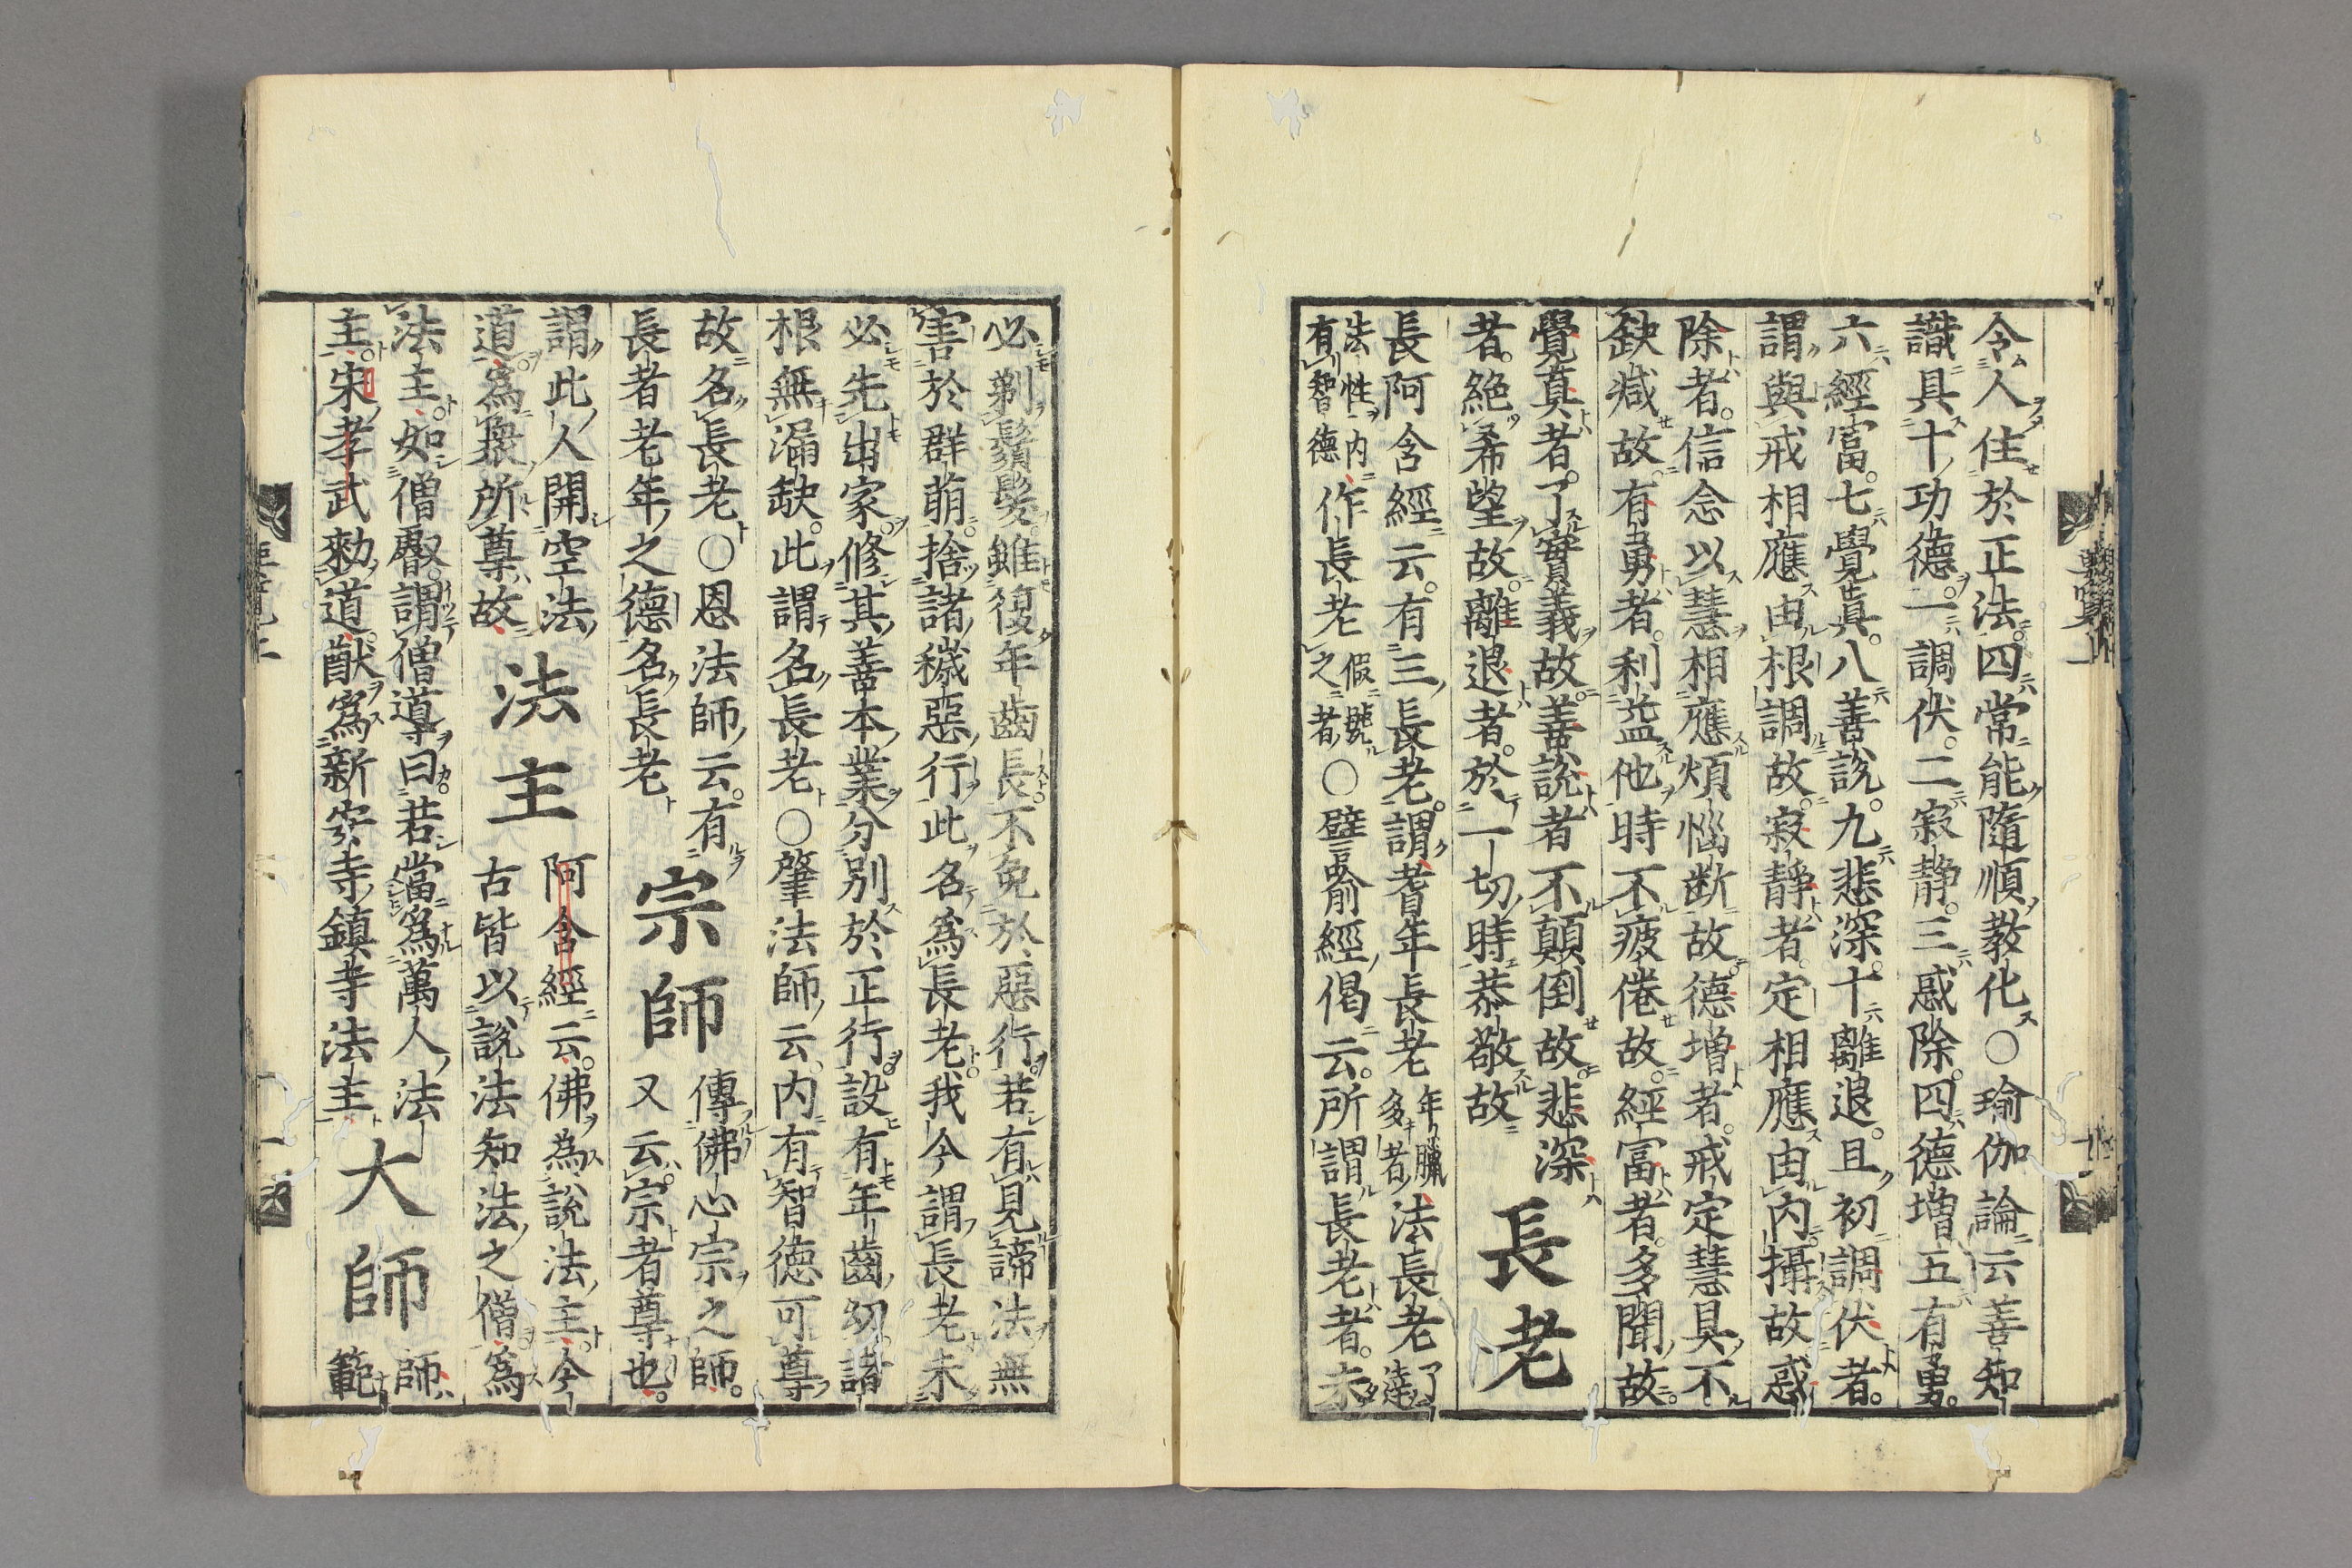 令人住於正法四常能隨順教化○瑜伽論云善知
識具十功德一調伏二寂静三惑除四德増五有勇
六經富七覺眞八善說九悲深十離退且初調伏者
謂與戒相應由根調故寂静者定相應由内攝故惑
除者信念以慧相應煩惱断故德増者戒定慧具不
缺减故有勇者利益他時不疲倦故經富者多聞故
覺真者了實義故善說者不顛倒故悲深
者絶希望故離退者於一切時恭敬故
長老
長阿含經云有三長老謂耆年長老年臘多者法長老了達
法性内有智德作長老假號之者○譬喻經偈云所謂長老者未
必剃鬚髮雖復年齒長不免於惡行若有見諦法無
害於群萌捨諸穢惡行此名為長老我今謂長老未
必先出家修其善本業分別於正行設有年齒幼諸
根無漏缺此謂名長老○肇法師云内有智德可尊
故名長老○恩法師云有
長者老年之德名長老
宗師
傳佛心宗之師
又云宗者尊也
謂此人開空法
道為衆所尊故
法主
阿含經云佛為說法主今
古皆以說法知法之僧為
法主如僧叡謂僧導曰若當為萬人法
主宋孝武勑道猷為新安寺鎮寺法主
大師
師
範